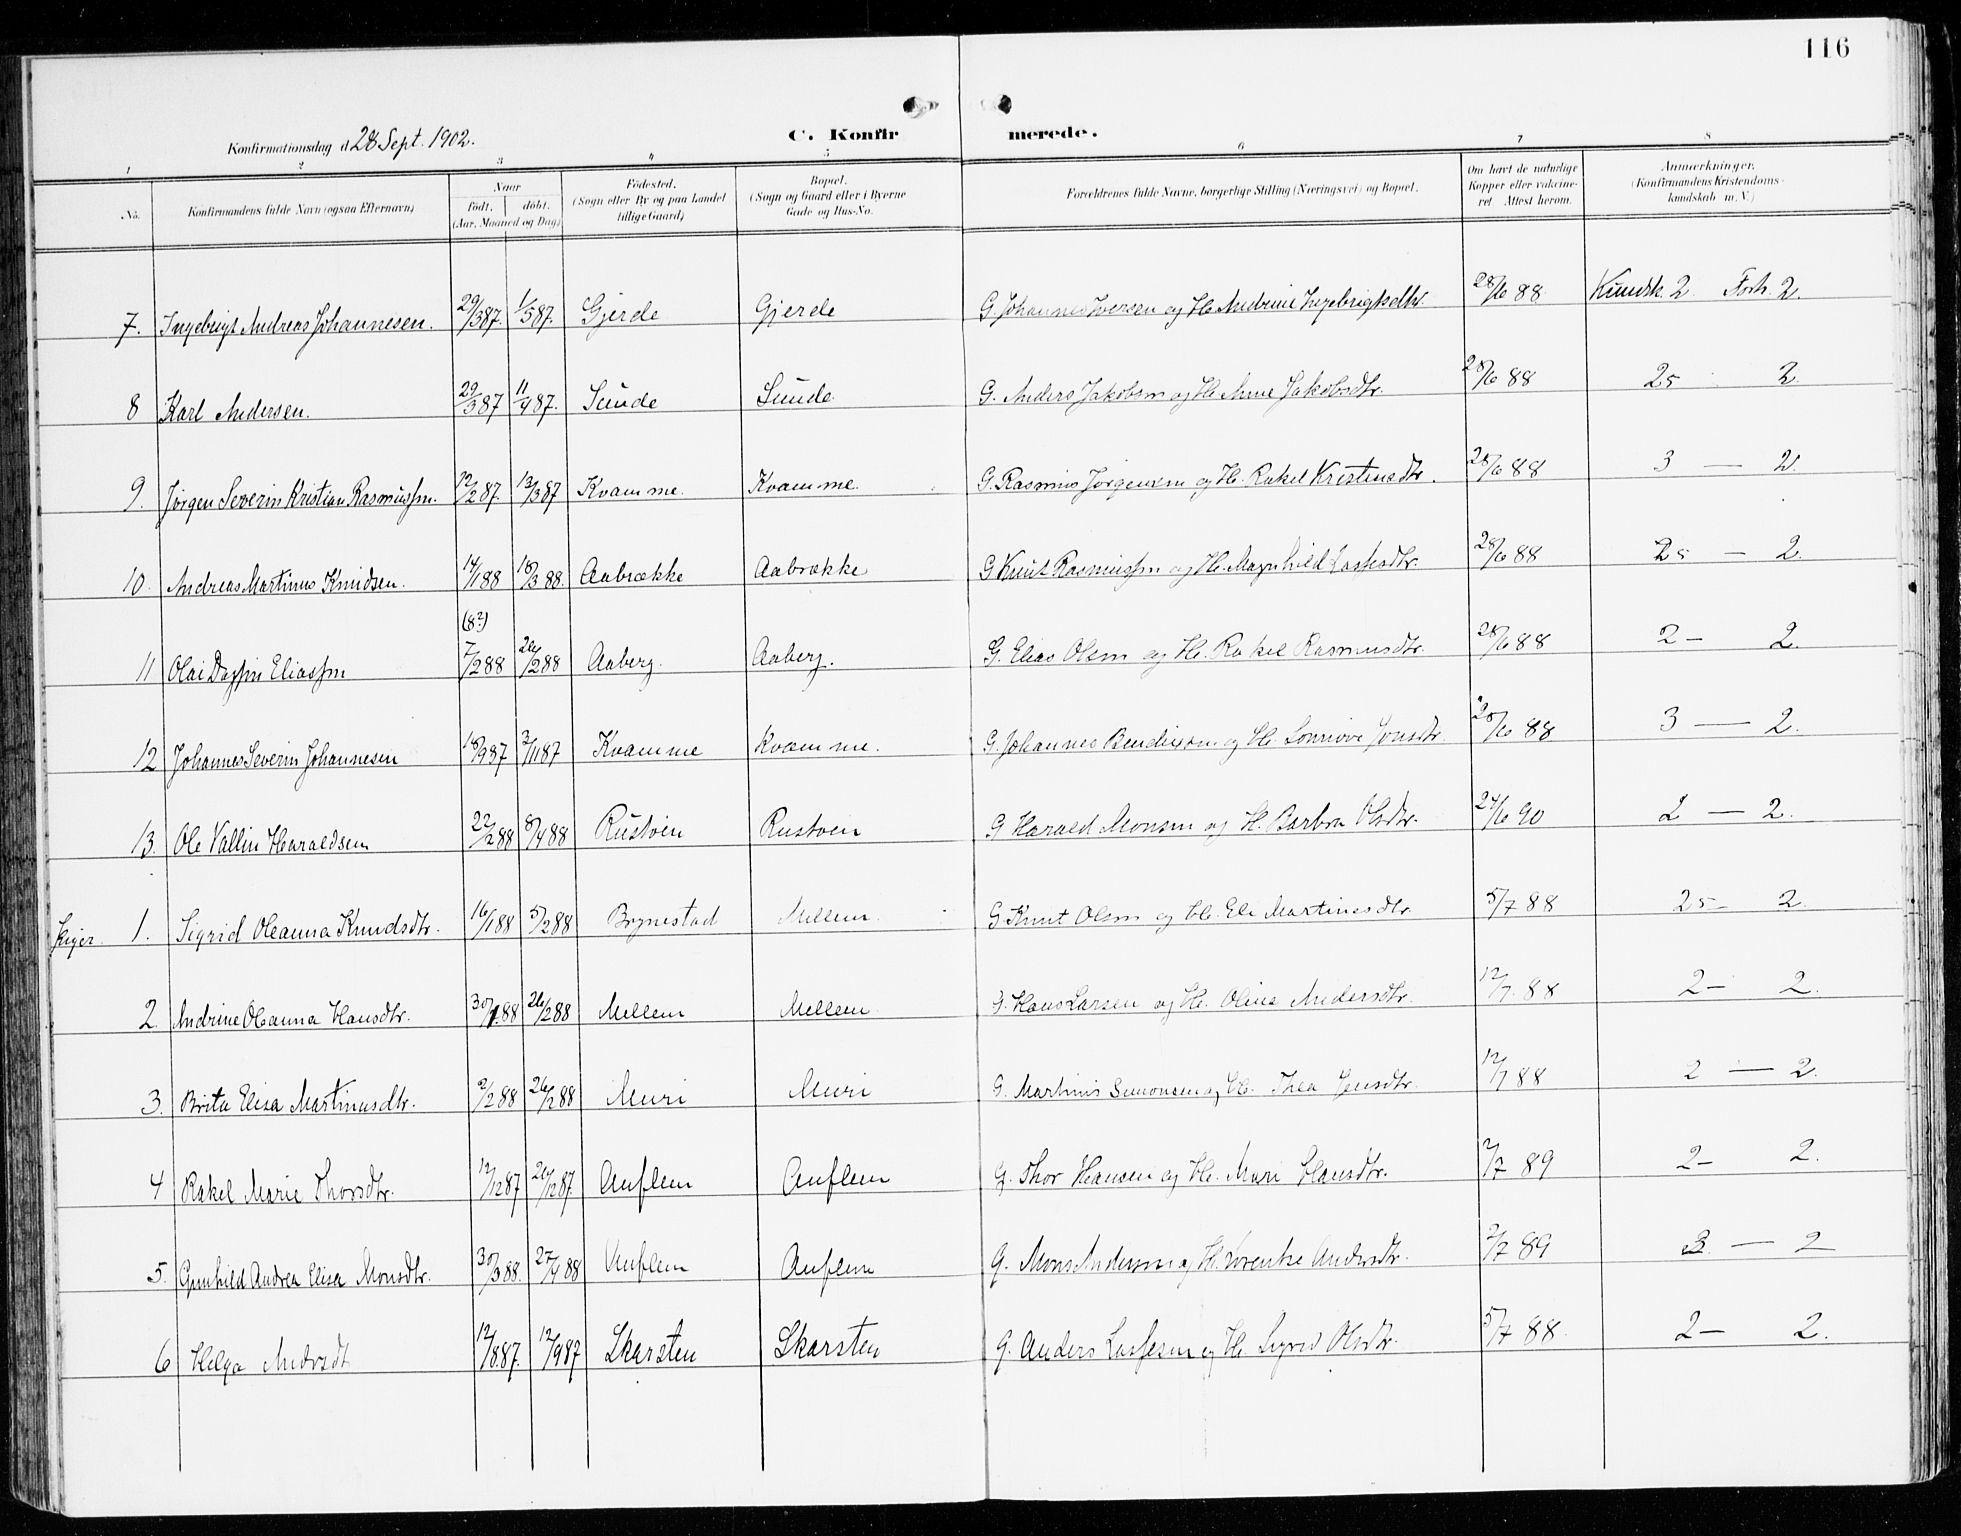 116
Konfirmationsdag d 28 Sept. 1902.
C. Konfirmerede.
1 2 3 4 5 6 7 8
No. Konfirmandens fulde Navn (ogsaa Efternavn) Naar født. døbt. (Aar, Maaned og Dag) Fødested. (Sogn eller By og paa Landet tillige Gaard) Bopæl. (Sogn og Gaard eller i Byerne Gade og Hus-No. Forældrenes fulde Navne, borgerlige Stilling (Næringsvei) og Bopæl. Om havt de naturlige Kopper eller vakcineret. Attest herom. Anmærkninger. (Konfirmandens Kristendomskundskab m. V.)
7. Ingebrigt Andreas Johannesen. 29/3 87. 1/5 87. Gjerde Gjerde G. Johannes Iversen og H. Andrine Ingebrigtsdtr. 28/6 88 Kundsk. 2 Forh. 2.
8 Karl Andersen. 29/3 87 11/4 87. Sunde Sunde G. Anders Jakobsen og H. Anne Jakobsdtr. 28/6 88 25 2
9. Jørgen Severin Kristian Rasmussen. 12/2 87. 13/3 87 Kvamme. Kvamme. G. Rasmus Jørgensen og H. Rakel Kristensdtr. 28/6 88 3 — 2.
10. Andreas Martinus Knudsen. 14/1 88 18/3 88. Aabrække Aabrække G Knut Rasmussen og H. Magnhild Lassesdtr. 28/6 88 25 — 2.
(8?)
11 Olai Dagfin Eliassen 7/2 88 26/2 88 Aaberg. Aaberg. G. Elias Olsen og H. Rakel Rasmusdtr. 28/6 88 2 — 2.
12 Johannes Severin Johannesen 18/9 87 3/11 87 Kvamme Kvamme. G. Johannes Bendixsen og H. Sonnøve Jonsdtr. 28/6 88 3 — 2.
13. Ole Vallin Haraldsen 22/2 88 8/4 88 Rustøen Rustøen G Harald Monsen og H. Barbra Olsdtr. 24/6 90 2 — 2.
Piger. 1. Sigrid Oleanna Knudsdtr. 16/1 88 5/2 88 Brynestad Mellem. G Knut Olsen og H. Eli Martinusdtr. 5/7 88 25 — 2.
2. Andrine Oleanna Hansdtr. 30/1 88 26/2 88 Mellem Mellem G. Hans Larsen og H. Olina Andersdtr. 12/7. 88 2 — 2.
3. Brita Elisa Martinusdtr. 2/2 88 26/2 88 Muri Muri G. Martinus Simonsen og H. Thea Jensdtr. 12/7 88 2 — 2.
4 Rakel Marie Thorsdtr. 12/12 87 26/12 87. Auflem Auflem G. Thor Hansen og H. Mari Hansdtr. 2/7 89 2 — 2.
5. Gunhild Andrea Elisa Monsdtr. 30/3 88. 27/4 88 Auflem Auflem G. Mons Andersen og H. Lorentse Andersdtr. 2/7 89 3 — 2
6 Helga Andersdt 12/8 87. 12/9 87 Skarsten Skarsten G. Anders Lassesen og H. Sigrid Olsdtr. 5/7 88. 2 — 2.